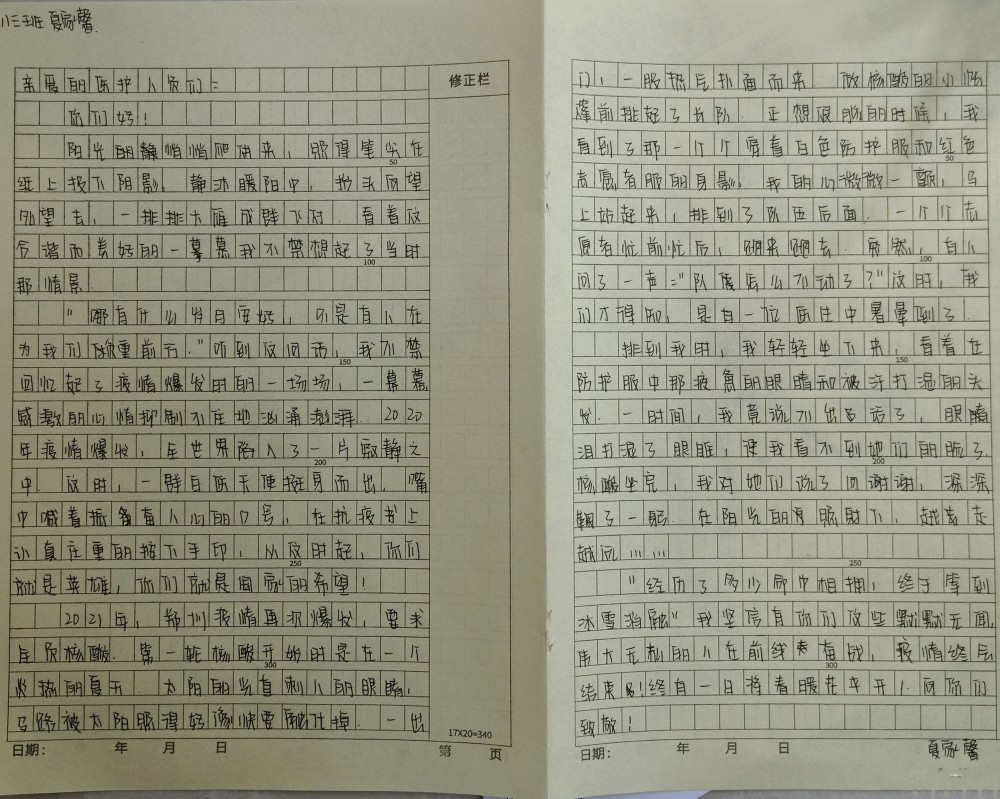 八三班 夏家馨
亲爱的医护人员们：
修正栏
你们好！
阳光的静悄悄爬进来，那得笔尖在
50
纸上投下阴影。静沐暖阳中，抬头向望
外望去，一排排大雁成群飞过．看着这
令谐而美好的一幕幕我不禁想起了当时
100
那情景．
"哪有什么岁月安好，只是有人在
为我们负重前行."听到这句话，我不禁
150
回忆起了疫情爆发时的一场场，一幕幕
感激的心情抑制不住地汹涌澎湃．2020
年疫情爆发，全世界陷入了一片寂静之
200
中．这时，一群白衣天使挺身而出，嘴
中喊着振奋人心的口号，在抗疫书上
认真庄重的按下手印，从这时起，你们
250
就是英雄，你们就是国家的希望！
2021年，郑州疫情再次爆发，要求
全员核酸．第一轮核酸开始时是在一个
300
炎热的夏天．太阳的光直刺人的眼睛，
马路被太阳照得好像快要融化掉．一出
17X20=340
日期： 年 月 日 第 页
门，一股热气扑面而来．做核酸的小帐
篷前排起了长队．正想退缩的时候，我
看到了那一个个穿着白色防护服和红色
50
志愿者服的身影．我的心微微一颤，马
上站起来，排到了队伍后面．一个个志
愿者忙前忙后，跑来跑去．突然，有人
100
问了一声："队怎么不动了？"这时，我
们才得知，是有一位医生中暑晕倒了．
排到我时，我轻轻坐下来，看着在
150
防护服中那疲惫的眼睛和被汗打湿的头
发．一时间，我竟说不出话了，眼睛
泪打湿了眼眶，使我看不到她们的脸了．
200
核酸坐完，我对她们说了句谢谢，深深
鞠了一躬．在阳光的照射下，越走
越远……
250
"经历了多少命中相拥，终于等到
冰雪消融"我坚信有你们这些默默无闻，
伟大无私的人在前线奋战，疫情终会
300
结束的！终有一日将春暖花开！向你们
致敬！
日期： 年 月 日
夏家馨